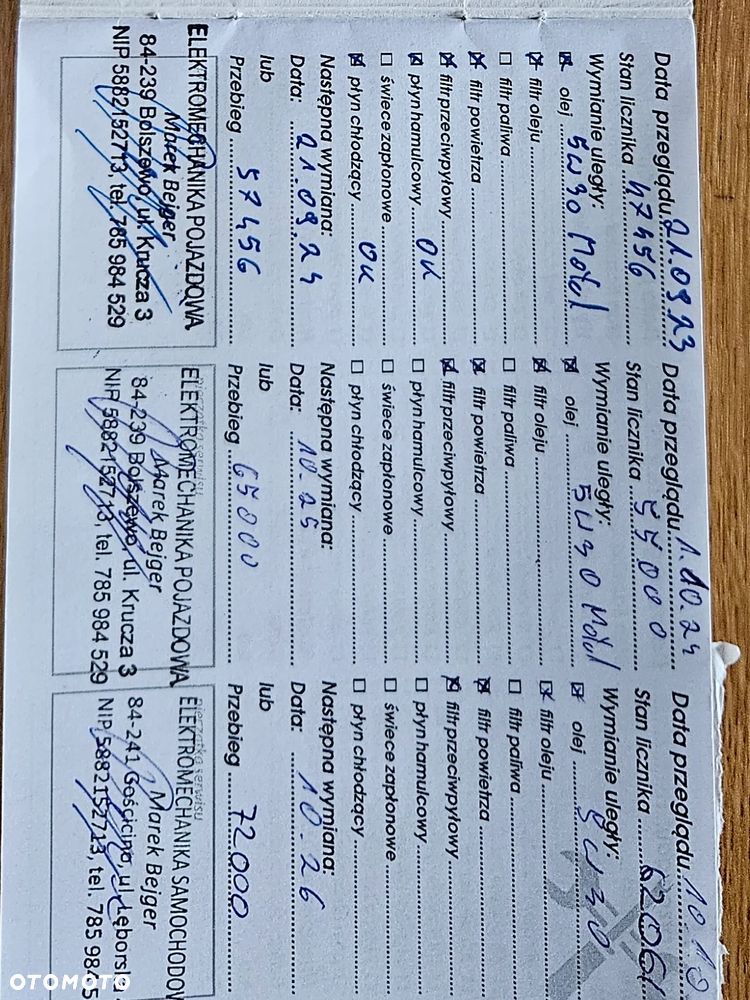 Data przeglądu 21.09.23
Stan licznika 47456
Wymianie uległy:
olej 5W30 Motul
filtr oleju
filtr paliwa
filtr powietrza
filtr przeciwpyłowy
płyn hamulcowy OK
świece zapłonowe
płyn chłodzący OK
Następna wymiana:
Data: 21.09.24
lub
Przebieg 57456
ELEKTROMECHANIKA POJAZDOWA
Marek Bejger
84-239 Bolszewo, ul. Krucza 3
NIP 5882152713, tel. 785 984 529
Data przeglądu 1.10.24
Stan licznika 55000
Wymianie uległy:
olej 5W30 Motul
filtr oleju
filtr paliwa
filtr powietrza
filtr przeciwpyłowy
płyn hamulcowy
świece zapłonowe
płyn chłodzący
Następna wymiana:
Data: 10.25
lub
Przebieg 65000
pieczątka serwisu
ELEKTROMECHANIKA POJAZDOWA
Marek Bejger
84-239 Bolszewo, ul. Krucza 3
NIP 5882152713, tel. 785 984 529
Data przeglądu 10.10
Stan licznika 6206
Wymianie uległy:
olej 5W30
filtr oleju
filtr paliwa
filtr powietrza
filtr przeciwpyłowy
płyn hamulcowy
świece zapłonowe
płyn chłodzący
Następna wymiana:
Data: 10.26
lub
Przebieg 72000
pieczątka serwisu
ELEKTROMECHANIKA SAMOCHODOW
Marek Bejger
84-241 Gościcino, ul. Lębors
NIP 5882152713, tel. 785 984 5
OTOMOTO